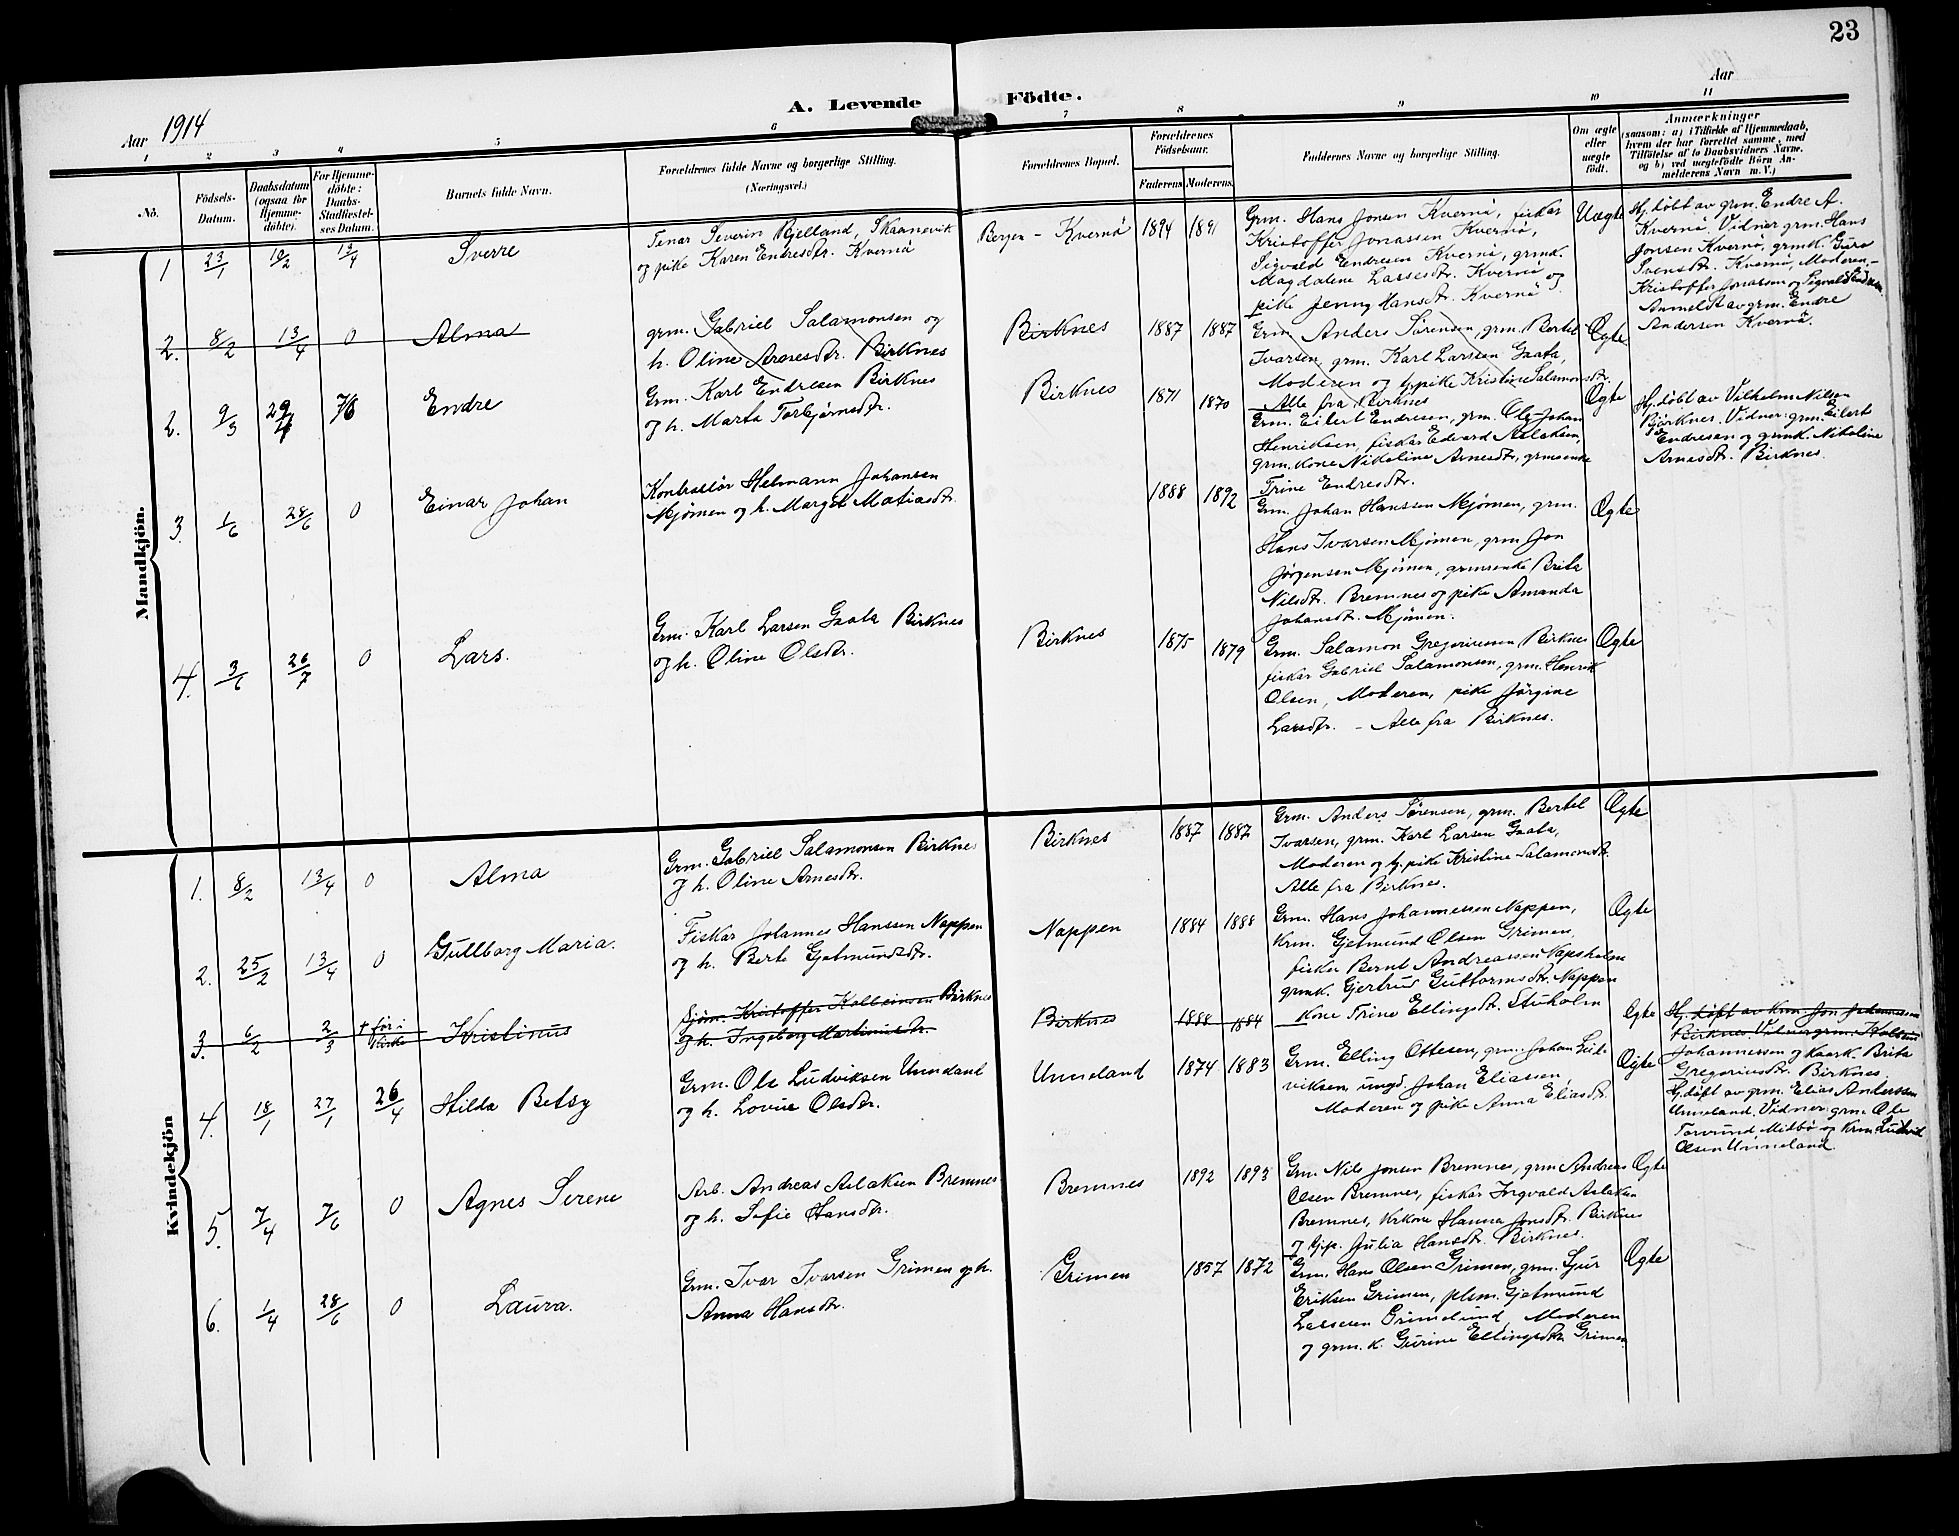 23
Aar 1914
A. Levende Födte.
Aar
1 2 3 4 5 6 7 8 9 10 11
No.
Födsels-
Datum.
Daabsdatum
(ogsaa for
Hjemme-
döbte).
For Hjemme-
döbte:
Daabs-
Stadfæstel-
ses Datum.
Barnets fulde Navn.
Forældrenes fulde Navne og borgerlige Stilling.
(Næringsvei.)
Forældrenes Bopæl.
Forældrenes
Födselsaar.
Faderens Moderens.
Faddernes Navne og borgerlige Stilling.
Om ægte
eller
uægte
födt.
Anmærkninger
(saasom: a) i Tilfælde af Hjemmedaab,
hvem der har forrettet samme, med
Tilföielse af to Daabsvidners Navne,
og b) ved uægtefödte Börn An-
melderens Navn m. V.)
Mandkjön.
1 23/1 19/2 13/4 Sverre
Severin Bjelland, Skaanevik
og pike Karen Endresdtr. Kvernø
Bergen - Kvernø 1894 1891
Grm. Hans Jonsen Kvernø, fisker
Kristoffer Jonassen Kvernø,
Sigvald Endresen Kvernø, grmk.
Magdalene Larsesdtr. Kvernø og
pike Jenny Hansdtr. Kvernø
Uægte
Hj. døbt av grm. Endre A.
Kvernø, Vidner grm. Hans
Jonsen Kvernø, grmk. Guro
Svensdtr. Kvernø, Moderen -
Kristoffer Jonassen og Sigvald Endresen
Anmeldt av grm. Endre
Andersen Kvernø.
2. 8/2 13/4 0 Alma
grm. Gabriel Salamonsen og
h. Oline Arnesdtr. Birknes
Birknes 1887 1887
Grm. Anders Sørensen, grm. Bertel
Ivarsen, grm. Karl Larsen Gaata,
Moderen og tj. pike Kristine Salamonsdtr.
Alle fra Birknes
Ægte
2. 9/3 29/4 7/6 Endre
Grm. Karl Endresen Birknes
og h. Marta Torbjørnsdtr.
Birknes 1871 1870
Grm. Eilert Endresen, grm. Ole Johan
Henriksen, fisker Edvard Aslaksen,
grm. kone Nikoline Arnesdtr., grmenke
Trine Endresdtr.
Ægte
Hj. døbt av Vilhelm Nilsen
Bjørknes. Vidner: grm. Eilert
Endresen og grmk. Nikoline
Arnesdtr. Birknes.
3. 1/6 28/6 0 Einar Johan
Kontrollør Helmann Johansen
Mjømen og h. Margit Matiasdtr.
1888 1892
Grm. Johan Hanssen Mjømen, grm.
Hans Ivarsen Mjømen, grm Jon
Jørgensen Mjømen, grmenke Brita
Nilsdtr. Bremnes og pike Amanda
Johansdtr. Mjømen.
Ægte
4. 3/6 26/7 0 Lars.
Grm. Karl Larsen Gaata Birknes
og h. Oline Olsdtr.
Birknes 1875 1879
Grm. Salamon Gregoriussen Birknes
fisker Gabriel Salamonsen, grm. Henrik
Olsen, Moderen, pike Jørgine
Larsdtr. - Alle fra Birknes.
Ægte
Kvindekjön
1. 8/2 13/4 0 Alma
Grm. Gabriel Salamonsen Birknes
og h. Oline Arnesdtr.
Birknes 1887 1887
Grm. Anders Sørensen, grm. Bertel
Ivarsen, grm. Karl Larsen Gaata,
Moderen og tj. pike Kristine Salamonsdtr.
Alle fra Birknes.
Ægte
2. 25/2 13/4 0 Gullborg Maria.
Fisker Johannes Hanssen Nappen
og h. Berte Gjetmundsdtr.
Nappen 1884 1888
Grm. Hans Johannessen Nappen,
Krm. Gjetmund Olsen Grimen,
fisker Bernt Andreassen Napsholm
grmk. Gjertrud Guttormsdtr. Nappen
Kone Trine Ellingsdtr. Stuholm
Ægte
3. 6/2 2/3 + før i Kirke Kristinus
Sjøm. Kristoffer Kolbeinsen Birknes
og h. Ingeborg Martinusdtr.
Birknes 1888 1884
Ægte
Hj. døft av krm. Jon Johannessen
Birknes. Vidner grm. Kolbein
Johannessen og Kaark. Brita
Gregoriusdtr. Birknes.
4. 18/1 27/1 26/4 Hilda Betsy
Grm. Ole Ludviksen Unneland
og h. Lovise Olsdtr.
Unneland 1874 1883
Grm. Elling Ottesen, grm. Johan Lud-
viksen, ungd. Johan Eliassen,
Moderen og pike Anna Eliasdtr.
Ægte
Hj. døft av grm. Elias Anderssen
Unneland. Vidner: grm. Ole
Torvund Midbø og Krm Ludvik
Olsen Unneland.
5. 7/4 7/6 0 Agnes Serene
Arb. Andreas Aslaksen Bremnes
og h. Sofie Hansdtr.
Bremnes 1892 1893
Grm. Nils Jonsen Bremnes, grm Andreas
Olsen Bremnes, fisker Ingvald Aslaksen
Bremnes, Krkone Hanna Jonsdtr. Birknes
og tjp. Julia Hansdtr. Birknes.
Ægte
6. 1/4 28/6 0 Laura.
Grm. Ivar Ivarsen Grimen og h.
Anna Hansdtr.
Grimen 1857 1872
Grm. Hans Olsen Grimen, grm. Sjur
Eriksen Grimen, plsm. Gjetmund
Larssen Grimelund, Moderen
og grm. k. Gurine Ellingsdtr. Grimen
Ægte